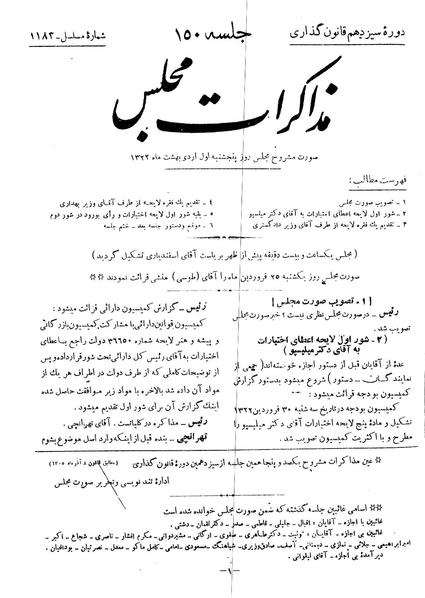 دورهٔ سیزدهم قانون گذاری
جلسه ۱۵۰
شمارهٔ مسلسل - ۱۱۸۳
مذاکرات مجلس
صورت مشروح مجلس روز پنجشنبه اول اردی بهشت ماه ۱۳۲۲
فهرست مطالب:
۱ - تصویب صورت مجلس
۲ - شور اول لایحه اعطای اختیارات به آقای دکتر میلسپو
۳ - تقدیم یک فقره لایحه از طرف آقای وزیر دادگستری
۴ - تقدیم یک فقره لایحه از طرف آقای وزیر بهداری
۵ - بقیه شور اول لایحه اختیارات و رأی بورود در شور دوم
۶ - موقع و دستور جلسه بعد - ختم جلسه
(مجلس یکساعت و بیست دقیقه پیش از ظهر بریاست آقای اسفندیاری تشکیل گردید)
صورت مجلس روز یکشنبه ۲۵ فروردین ماه را آقای (طوسی) منشی قرائت نمودند
[۱ - تصویب صورت مجلس]
رئیس - در صورت مجلس نظری نیست؟ خیر صورت مجلس
تصویب شد.
(۲ - شور اول لایحه اعطای اختیارات
به آقای دکتر میلسپو)
عدهٔ از آقایان قبل از دستور اجازه خواسته‌اند (جمعی از
نمایندگان - دستور) شروع میشود بدستور گزارش
کمیسیون بودجه قرائت میشود:
کمیسیون بودجه در تاریخ سه شنبه ۳۰ فروردین ۱۳۲۲
تشکیل و مادهٔ پنج لایحه اختیارات آقای دکتر میلسپو را
مطرح و با اکثریت کمیسیون تصویب شد.
رئیس - گزارش کمیسیون دارائی قرائت میشود:
کمیسیون قوانین دارائی با مشارکت کمیسیون بازرگانی
و پیشه و هنر لایحه شماره ۳۶۶۵۰ دولت راجع باعطای
اختیارات به آقای رئیس کل دارائی تحت شور قرار داده و پس
از توضیحات کاملی که از طرف دولت در اطراف هر یک از
مواد آن داده شد بالاخره با مواد زیر موافقت حاصل شده
اینک گزارش آن برای شور اول تقدیم میشود.
رئیس - مذاکره در کلیاتست. آقای تهرانچی.
تهرانچی - بنده قبل از اینکه وارد اصل موضوع بشوم
عین مذاکرات مشروح یکصد و پنجاهمین جلسه از سیزدهمین دورهٔ قانون گذاری
ادارهٔ تند نویسی و تحریر صورت مجلس
اسامی غائبین جلسه گذشته که ضمن صورت مجلس خوانده شده است
غائبین با اجازه - آقایان: اقبال - جلیلی - فاطمی - صدر - دکتر لقمان - دشتی.
غائبین بی اجازه - آقایان: تولیت - دکتر طاهری - اصغری - صفوی - ارگانی - مشیر دوانی - مکرم افشار - ناصری - شجاع - اکبر -
دیر آمدهٔ بی اجازه - آقای ایلوانی.
-۱-